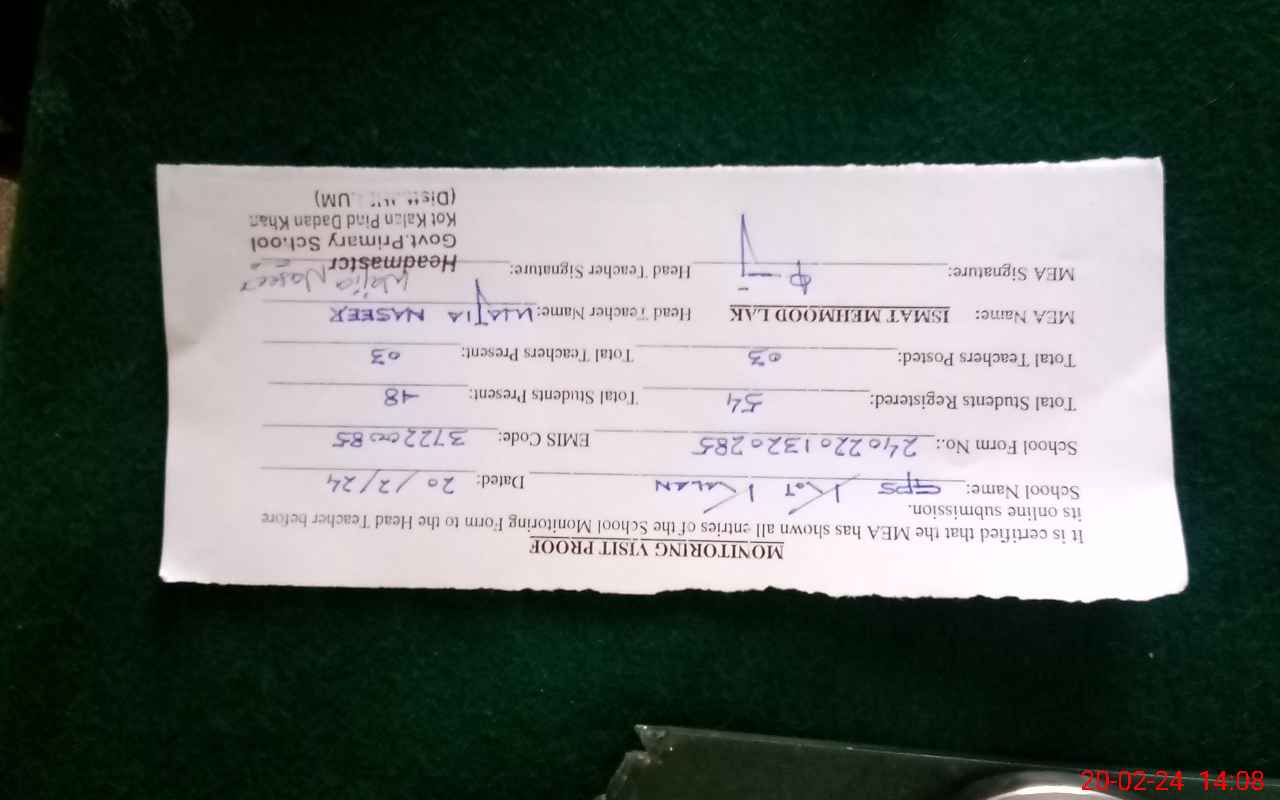 MONITORING VISIT PROOF
It is certified that the MEA has shown all entries of the School Monitoring Form to the Head Teacher before
its online submission.
School Name: GPS Kot Kalan Dated: 20/2/24
School Form No.: 2402201320285 EMIS Code: 37220085
Total Students Registered: 54 Total Students Present: 48
Total Teachers Posted: 03 Total Teachers Present: 03
MEA Name: ISMAT MEHMOOD LAK Head Teacher Name: WAJIA NASEER
MEA Signature: Head Teacher Signature: Wajia Naseer
Headmaster
Govt.Primary School
Kot Kalan Pind Dadan Khan
20-02-24 14:08